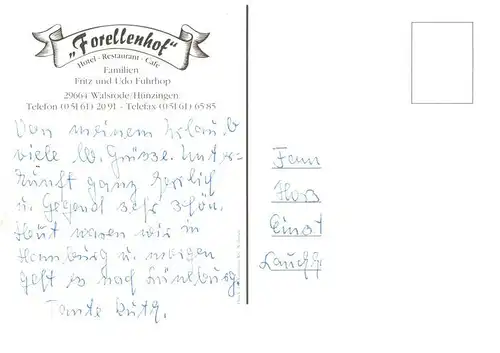 „Forellenhof"
Hotel - Restaurant - Cafe
Familien
Fritz und Udo Fuhrhop
29664 Walsrode/Hünzingen
Telefon (0 51 61) 20 91 - Telefax (0 51 61) 65 85
Von meinem Urlaub
viele lb. Grüsse. Unter-
kunft ganz herrlich
u. Gegend sehr schön.
Heut waren wir in
Hamburg u. morgen
geht es nach Lüneburg.
Tante Ruth.
Fam
Hors
Einst